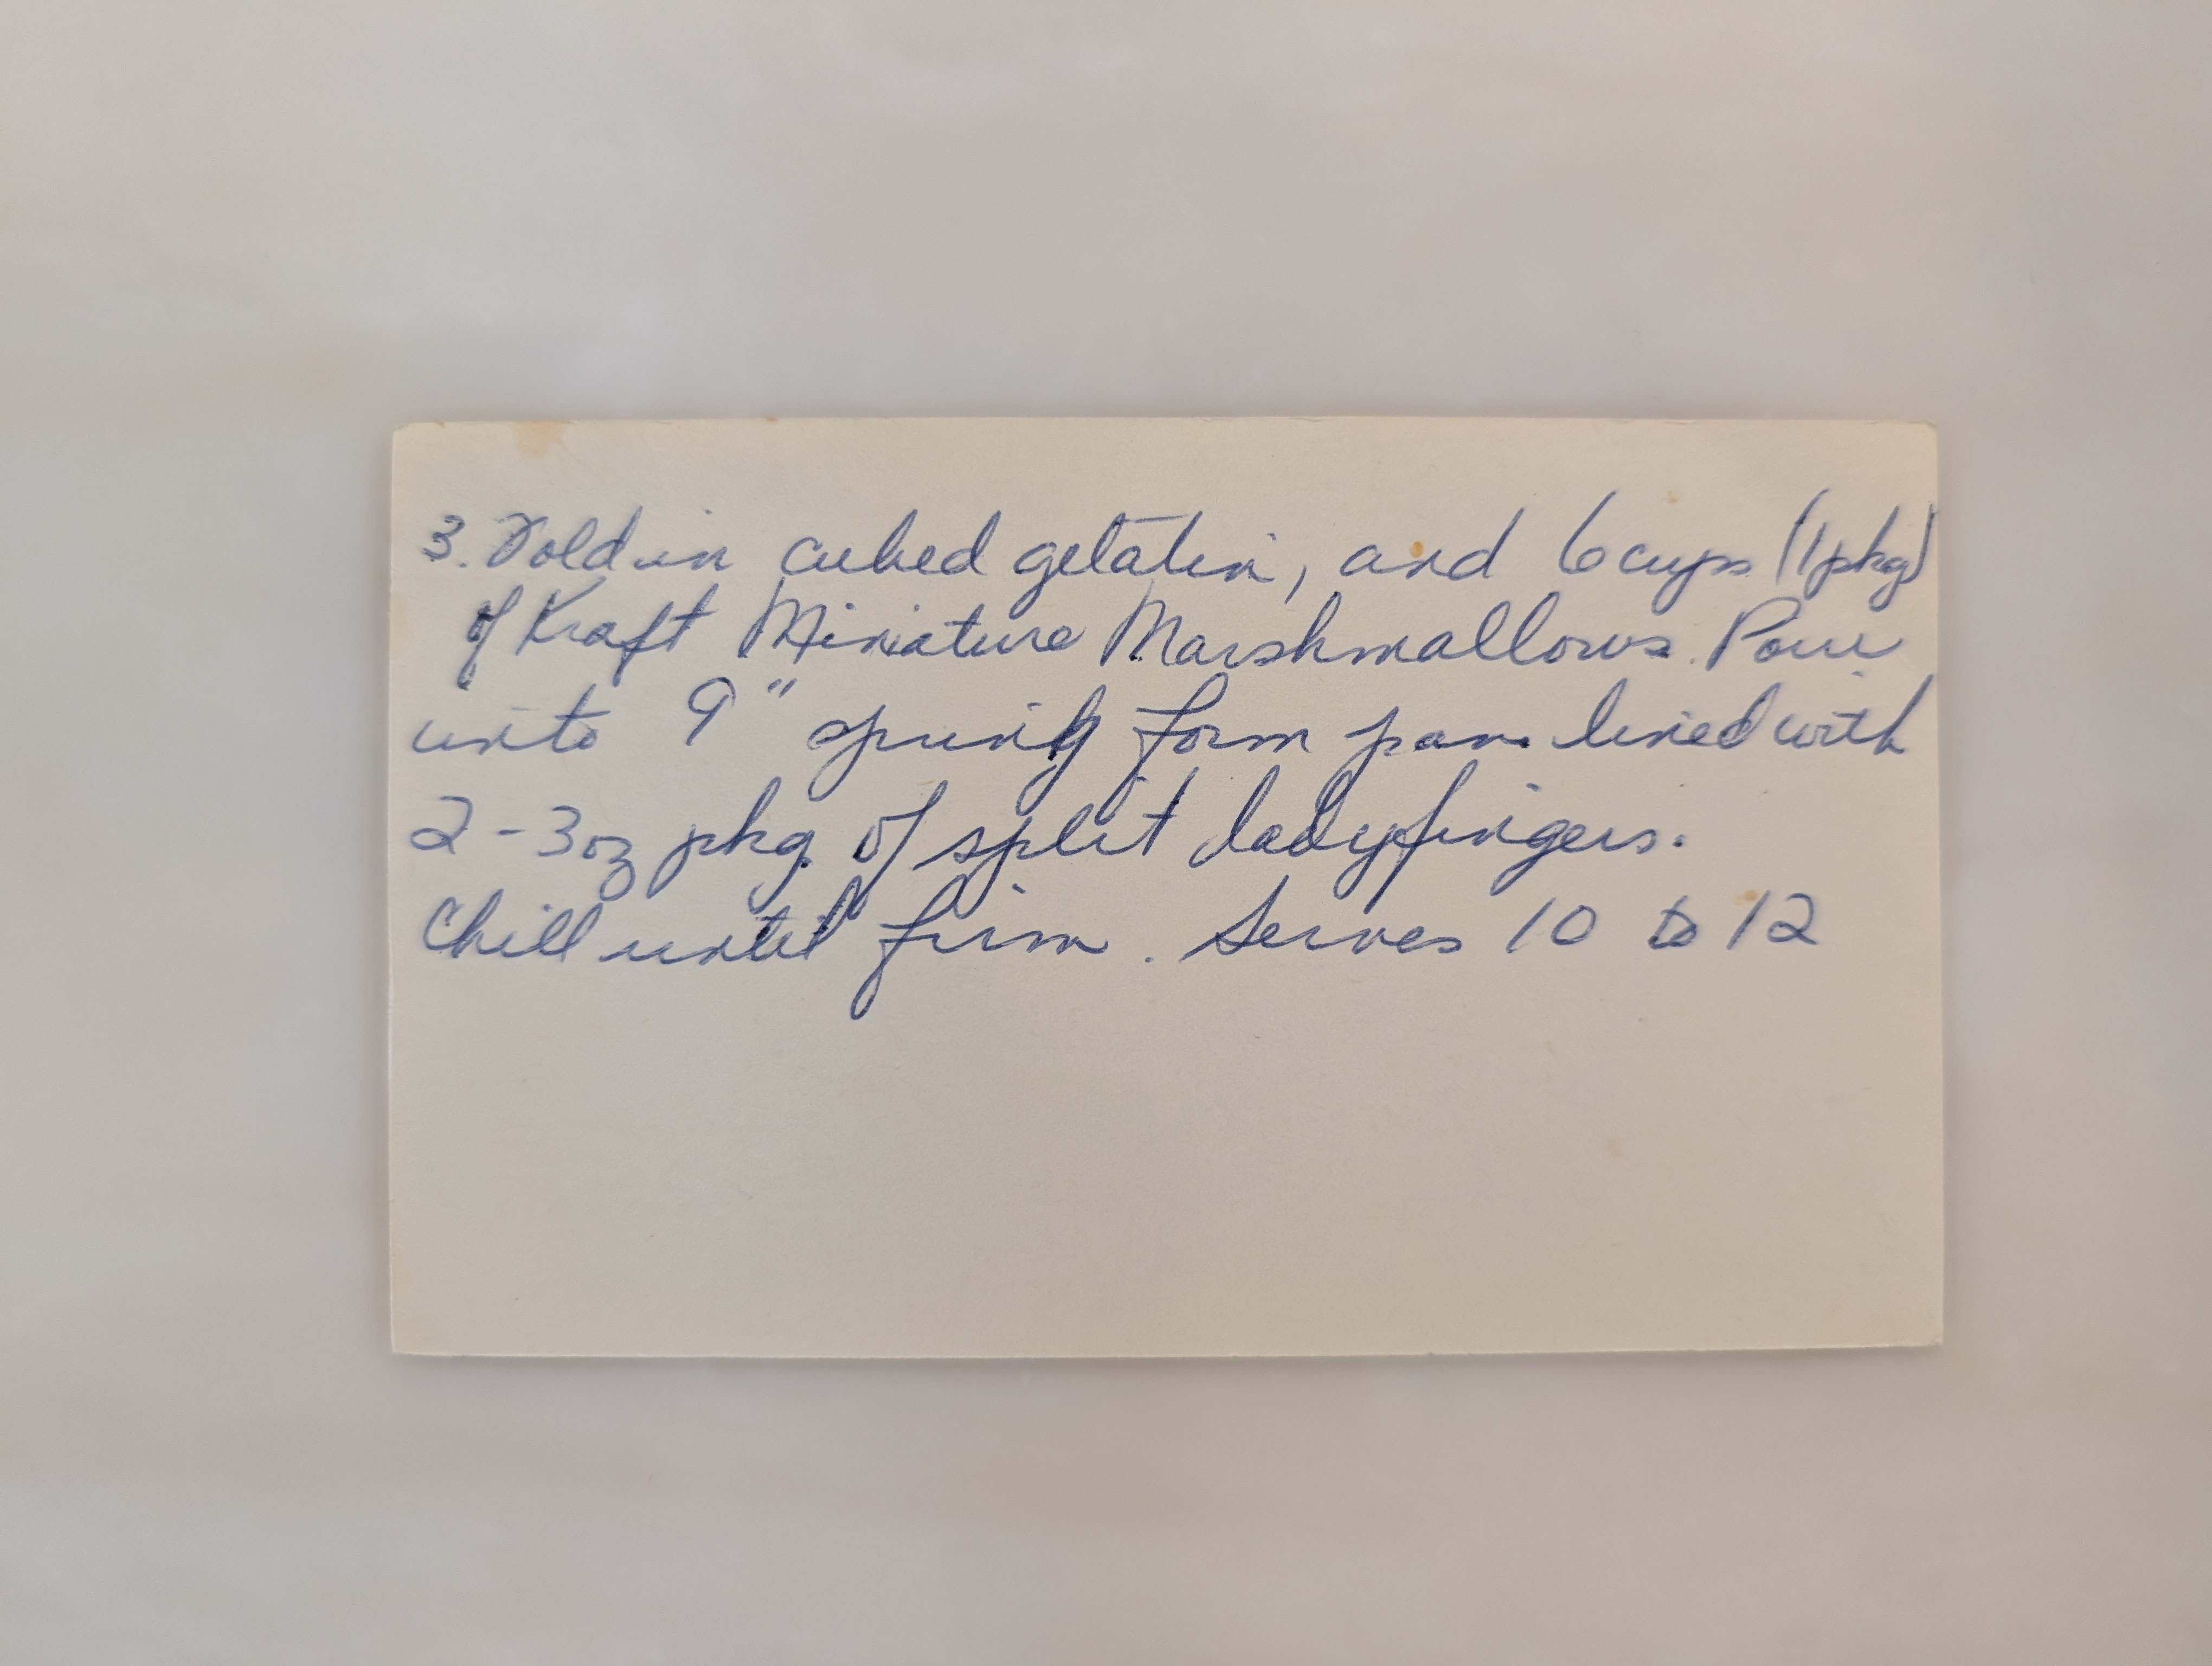 3. Fold in cubed gelatin, and 6 cups (1 pkg)
of Kraft Miniature Marshmallows. Pour
into 9" spring form pan lined with
2-3oz pkg. of split ladyfingers.
Chill until firm. Serves 10 to 12